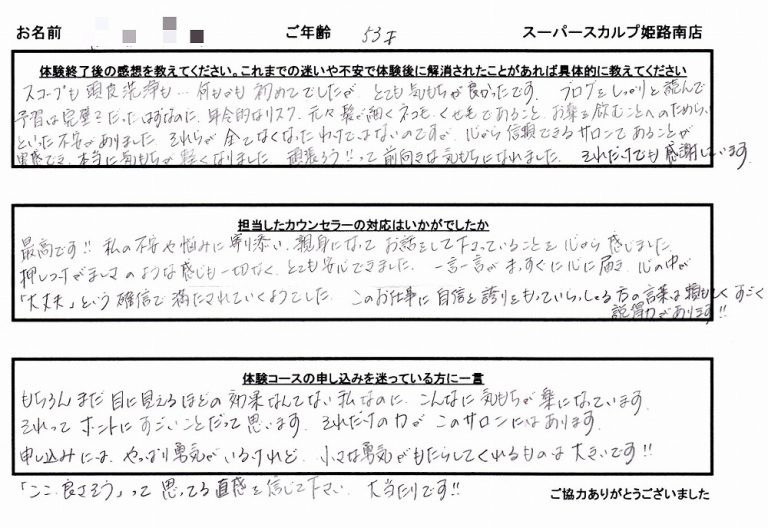 お名前 ご年齢 53才 スーパースカルプ姫路南店
体験終了後の感想を教えてください。これまでの迷いや不安で体験後に解消されたことがあれば具体的に教えてください
スコープも頭皮洗浄も…何もかも初めてでしたが、とても気もちが良かったです。ブログをしっかりと読んで
予習は完璧…だったはずなのに、身体的なリスク、元々髪が細くネコっ毛、くせ毛であること、お薬を飲むことへのためらい
といった不安がありました。それらが全てなくなったわけではないのですが、心から信頼できるサロンであることが
実感でき、本当に気もちが軽くなりました。頑張ろう!!って前向きな気もちになれました。それだけでも感謝しています。
担当したカウンセラーの対応はいかがでしたか
最高です!! 私の不安や悩みに寄り添い、親身になってお話をして下さっていることを心から感じました。
押しつけがましさのような感じも一切なく、とても安心できました。一言一言がまっすぐに心に届き、心の中が
「大丈夫」という確信で満たされていくようでした。このお仕事に自信と誇りをもっていらっしゃる方の言葉は頼もしくすごく
説得力があります!!
体験コースの申し込みを迷っている方に一言
もちろんまだ目に見えるほどの効果なんてない私なのに、こんなに気もちが楽になっています。
それってホントにすごいことだって思います。それだけの力がこのサロンにはあります。
申し込みには、やっぱり勇気がいるけれど、小さな勇気がもたらしてくれるものは大きいです!!
「ここ、良さそう」って思ってる直感を信じて下さい。大当たりです!!
ご協力ありがとうございました